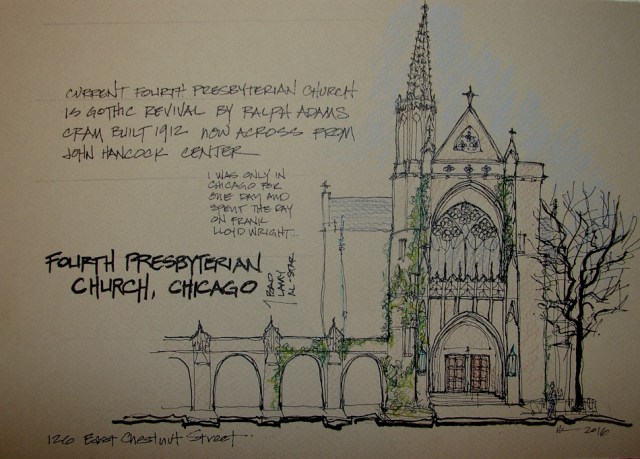 CURRENT FOURTH PRESBYTERIAN CHURCH
IS GOTHIC REVIVAL BY RALPH ADAMS
CRAM BUILT 1912 NOW ACROSS FROM
JOHN HANCOCK CENTER
I WAS ONLY IN
CHICAGO FOR
ONE DAY AND
SPENT THE DAY
ON FRANK
LLOYD WRIGHT
FOURTH PRESBYTERIAN
CHURCH, CHICAGO
126 East Chestnut Street.
2016